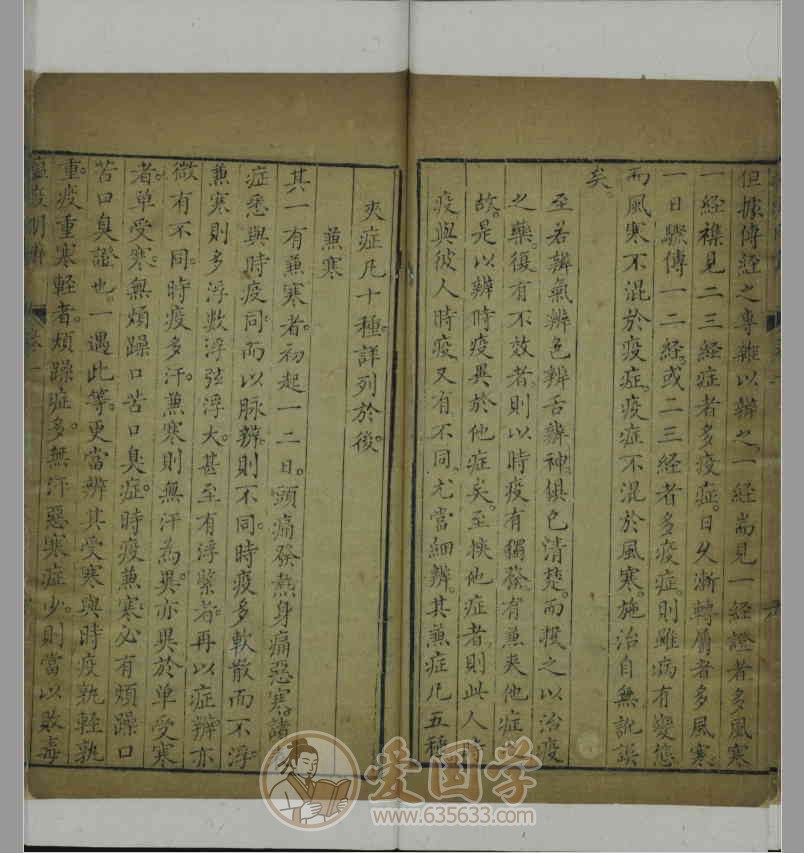 但據傳經之專雜以辨之一經耑見一經證者多風寒
一經襍見二三經症者多疫症。日久漸轉屬者多風寒
一日驟傳一二經。或二三經者多疫症。則雖病有變態
而風寒不混於疫症。疫症不混於風寒。施治自無訛誤
矣。
至若辨氣辨色辨舌辨神。俱已清楚。而投之以治疫
之藥。復有不效者。則以時疫有獨發。有兼夾他症
故。是以辨時疫異於他症矣。至挾他症者則此人
疫與彼人時疫又有不同。尤當細辨。其兼症凡五種
夾症凡十種。詳列於後。
兼寒
其一有兼寒者。初起一二日。頭痛發熱身痛惡寒。諸
症悉與時疫同。而以脉辨則不同。時疫多軟散而不浮。
兼寒則多浮数浮弦浮大。甚至有浮緊者。再以症辨亦
微有不同。時疫多汗。兼寒則無汗為異。亦異於单受寒
者。单受寒。無煩躁口苦口臭症。時疫兼寒。必有煩躁口
苦口臭證也。一遇此等。更當辨其受寒與時疫孰輕孰
重。疫重寒輕者。煩躁症多。無汗惡寒症少。則當以敗毒
爱国学
www.635633.com